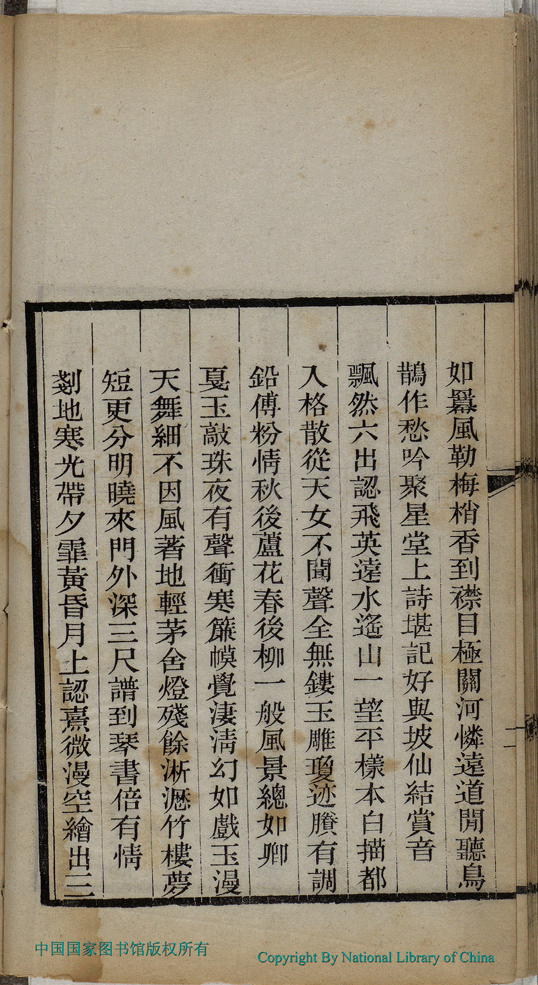 如羃風勒梅梢香到襟目極關河憐遠道閒聽鳥
鵲作愁吟聚星堂上詩堪記好與坡仙結賞音
飄然六出認飛英遠水遙山一望平樣本白描都
入格散從天女不聞聲全無鏤玉雕瓊迹賸有調
鉛傅粉情秋後蘆花春後柳一般風景總如卿
戛玉敲珠夜有聲衝寒簾幙覺淒淸幻如戲玉漫
天舞細不因風著地輕茅舍燈殘餘淅瀝竹樓夢
短更分明曉來門外深三尺譜到琴書倍有情
剗地寒光帶夕霏黃昏月上認熹微漫空繪出三
中国国家图书馆版权所有
Copyright By National Library of China